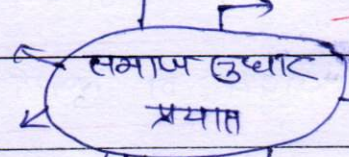 समाज सुधार
प्रयास